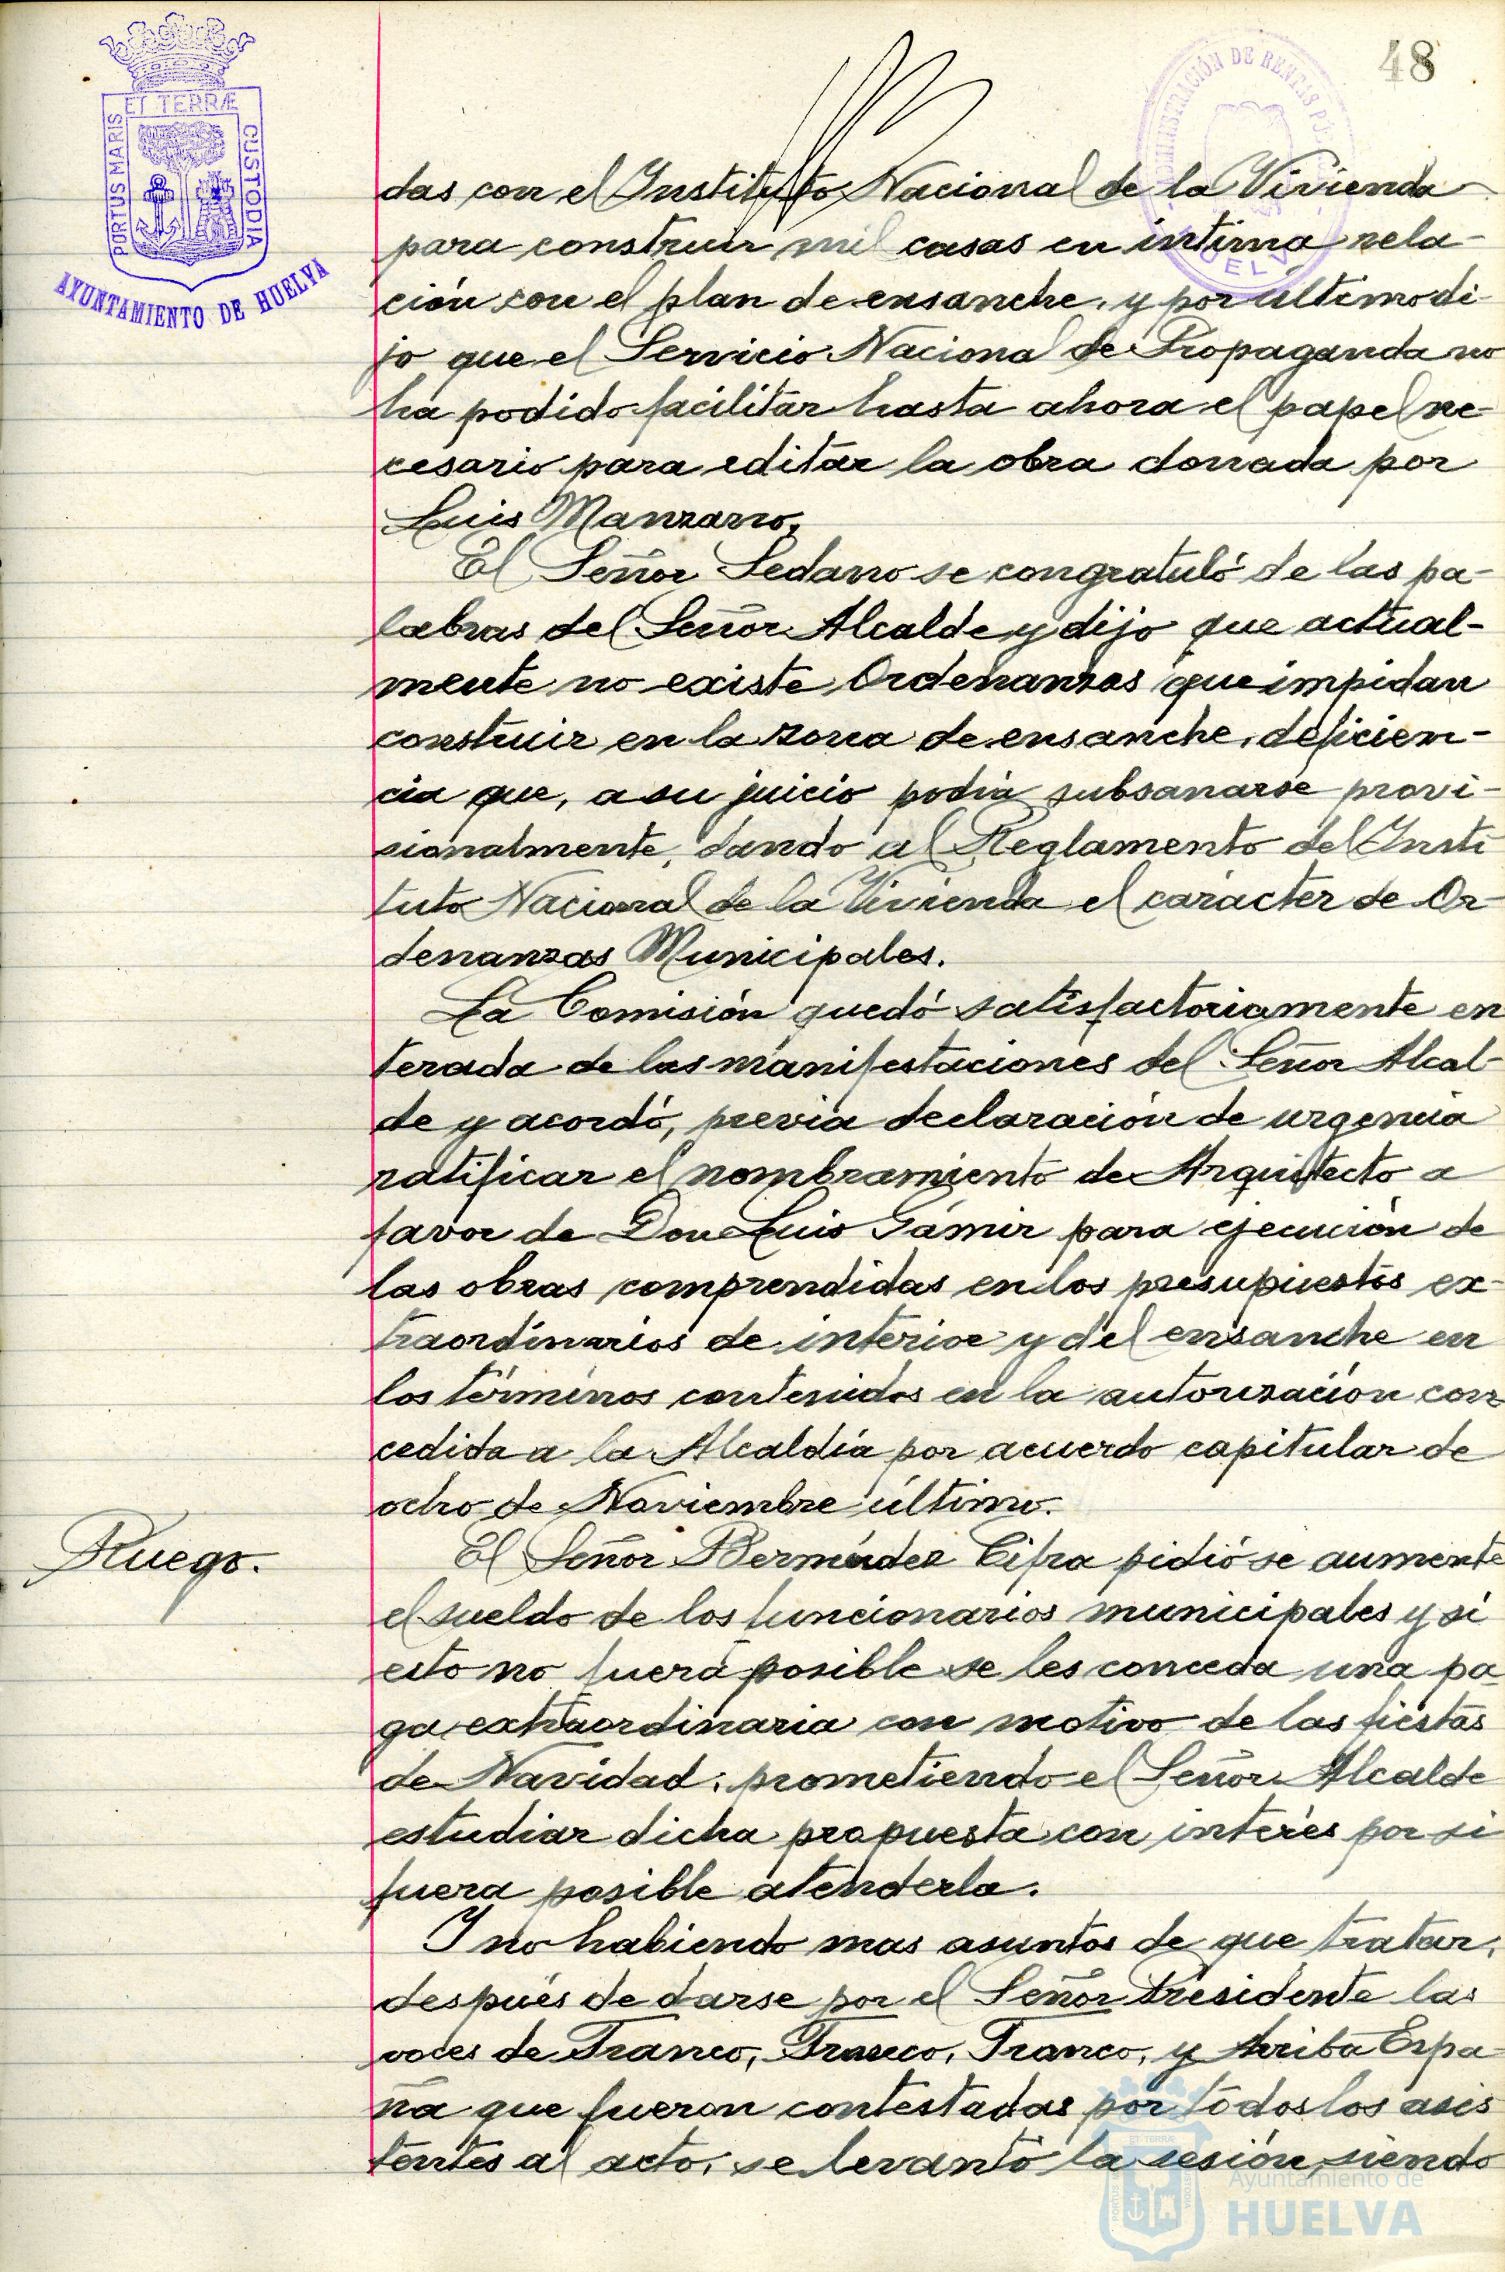 48
ET TERRÆ
PORTUS MARIS
CUSTODIA
AYUNTAMIENTO DE HUELVA
ADMINISTRACIÓN DE RENTAS
HUELVA
das con el Instituto Nacional de la Vivienda
para construir mil casas en intima rela-
ción con el plan de ensanche, y por último di-
jo que el Servicio Nacional de Propaganda no
ha podido facilitar hasta ahora el papel ne-
cesario para editar la obra donada por
Luis Manzano.
El Señor Sedano se congratuló de las pa-
labras del Señor Alcalde y dijo que actual-
mente no existe Ordenanzas que impidan
construir en la zona de ensanche, deficien-
cia que, a su juicio podía subsanarse provi-
sionalmente, dando al Reglamento del Insti-
tuto Nacional de la Vivienda el carácter de Or-
denanzas Municipales.
La Comisión quedó satisfactoriamente en
terada de las manifestaciones del Señor Alcal-
de y acordó, previa declaración de urgencia
ratificar el nombramiento de Arquitecto a
favor de Don Luis Gámir para ejecución de
las obras comprendidas en los presupuestos ex-
traordinarios de interior y del ensanche en
los términos contenidos en la autorización con
cedida a la Alcaldía por acuerdo capitular de
ocho de Noviembre último.
Ruego.
El Señor Bermúdez Cifra pidió se aumente
el sueldo de los funcionarios municipales y si
esto no fuera posible se les conceda una pa-
ga extraordinaria con motivo de las fiestas
de Navidad; prometiendo el Señor Alcalde
estudiar dicha propuesta con interés por si
fuera posible atenderla.
Y no habiendo mas asuntos de que tratar,
después de darse por el Señor Presidente las
voces de Franco, Franco, Franco, y Arriba Espa-
ña que fueron contestadas por todos los asis
tentes al acto, se levantó la sesión, siendo
Ayuntamiento de
HUELVA